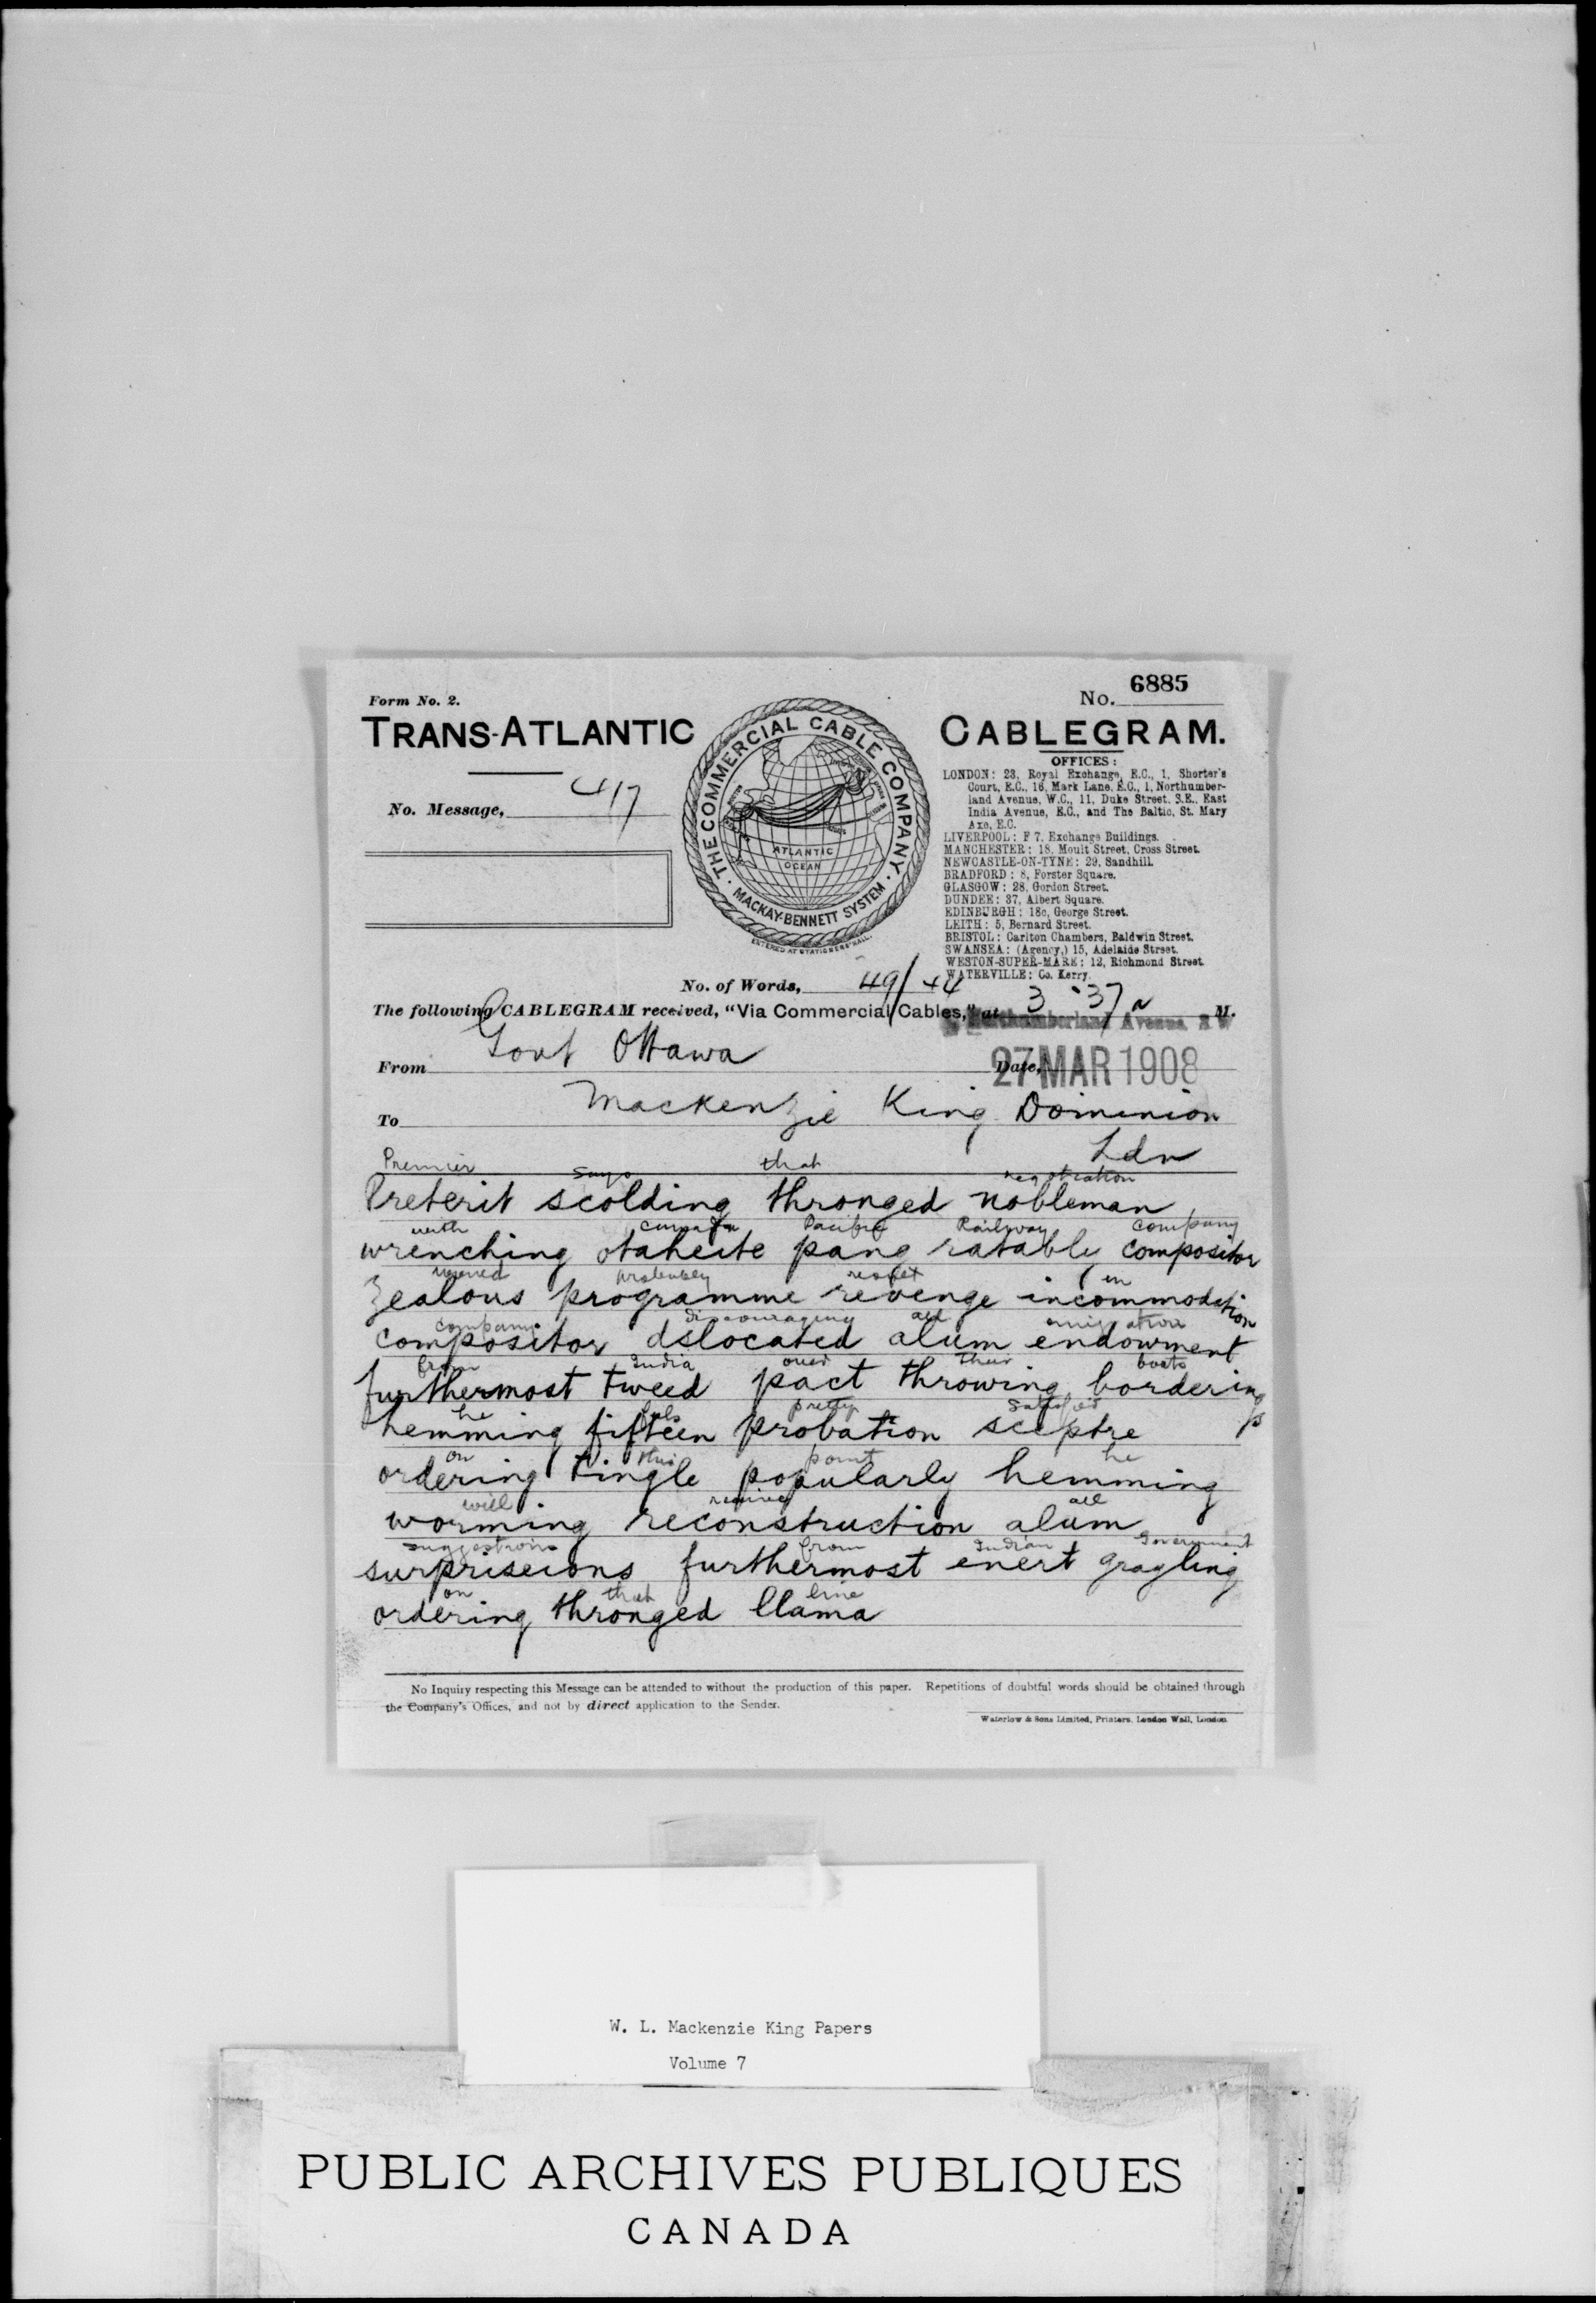 Form No. 2.
No. 6885
TRANS-ATLANTIC CABLEGRAM.
THE COMMERCIAL CABLE COMPANY.
MACKAY-BENNETT SYSTEM
ATLANTIC
OCEAN
ENTERED AT STATIONERS' HALL.
No. Message, 417
OFFICES:
LONDON: 23, Royal Exchange, E.C., 1, Shorter's
Court, E.C., 16, Mark Lane, E.C., 1, Northumber-
land Avenue, W.C., 11, Duke Street, S.E., East
India Avenue, E.C., and The Baltic, St. Mary
Axe, E.C.
LIVERPOOL: F 7, Exchange Buildings.
MANCHESTER: 18, Moult Street, Cross Street.
NEWCASTLE-ON-TYNE: 29, Sandhill.
BRADFORD: 8, Forster Square.
GLASGOW: 28, Gordon Street.
DUNDEE: 37, Albert Square.
EDINBURGH: 18c, George Street.
LEITH: 5, Bernard Street.
BRISTOL: Carlton Chambers, Baldwin Street.
SWANSEA: (Agency,) 15, Adelaide Street.
WESTON-SUPER-MARE: 12, Richmond Street.
WATERVILLE: Co. Kerry.
No. of Words, 49/44
The following CABLEGRAM received, "Via Commercial Cables," at 3.37 M.
Northumberland Avenue,
From Govt Ottawa Date, 27 MAR 1908
To Mackenzie King Dominion
Ldn
Premier says that negotiation
Preterit scolding thronged nobleman
with Canadian Pacific Railway company
wrenching otaheite pang ratably compositor
probably result in
Zealous programme revenge incommodation
company discouraging all emigration
compositor dslocated alum endowment
from India over their boats
furthermost tweed pact throwing bordering
he feels pretty satisfied
hemming fifteen probation sceptre
on this point he
ordering tingle popularly hemming
will receive all
worming reconstruction alum
suggestions from Indian Government
surpriseions furthermost enert grayling
on that line
ordering thronged llama
No Inquiry respecting this Message can be attended to without the production of this paper. Repetitions of doubtful words should be obtained through
the Company's Offices, and not by direct application to the Sender.
Waterlow & Sons Limited, Printers, London Wall, London
W. L. Mackenzie King Papers
Volume 7
PUBLIC ARCHIVES PUBLIQUES
CANADA